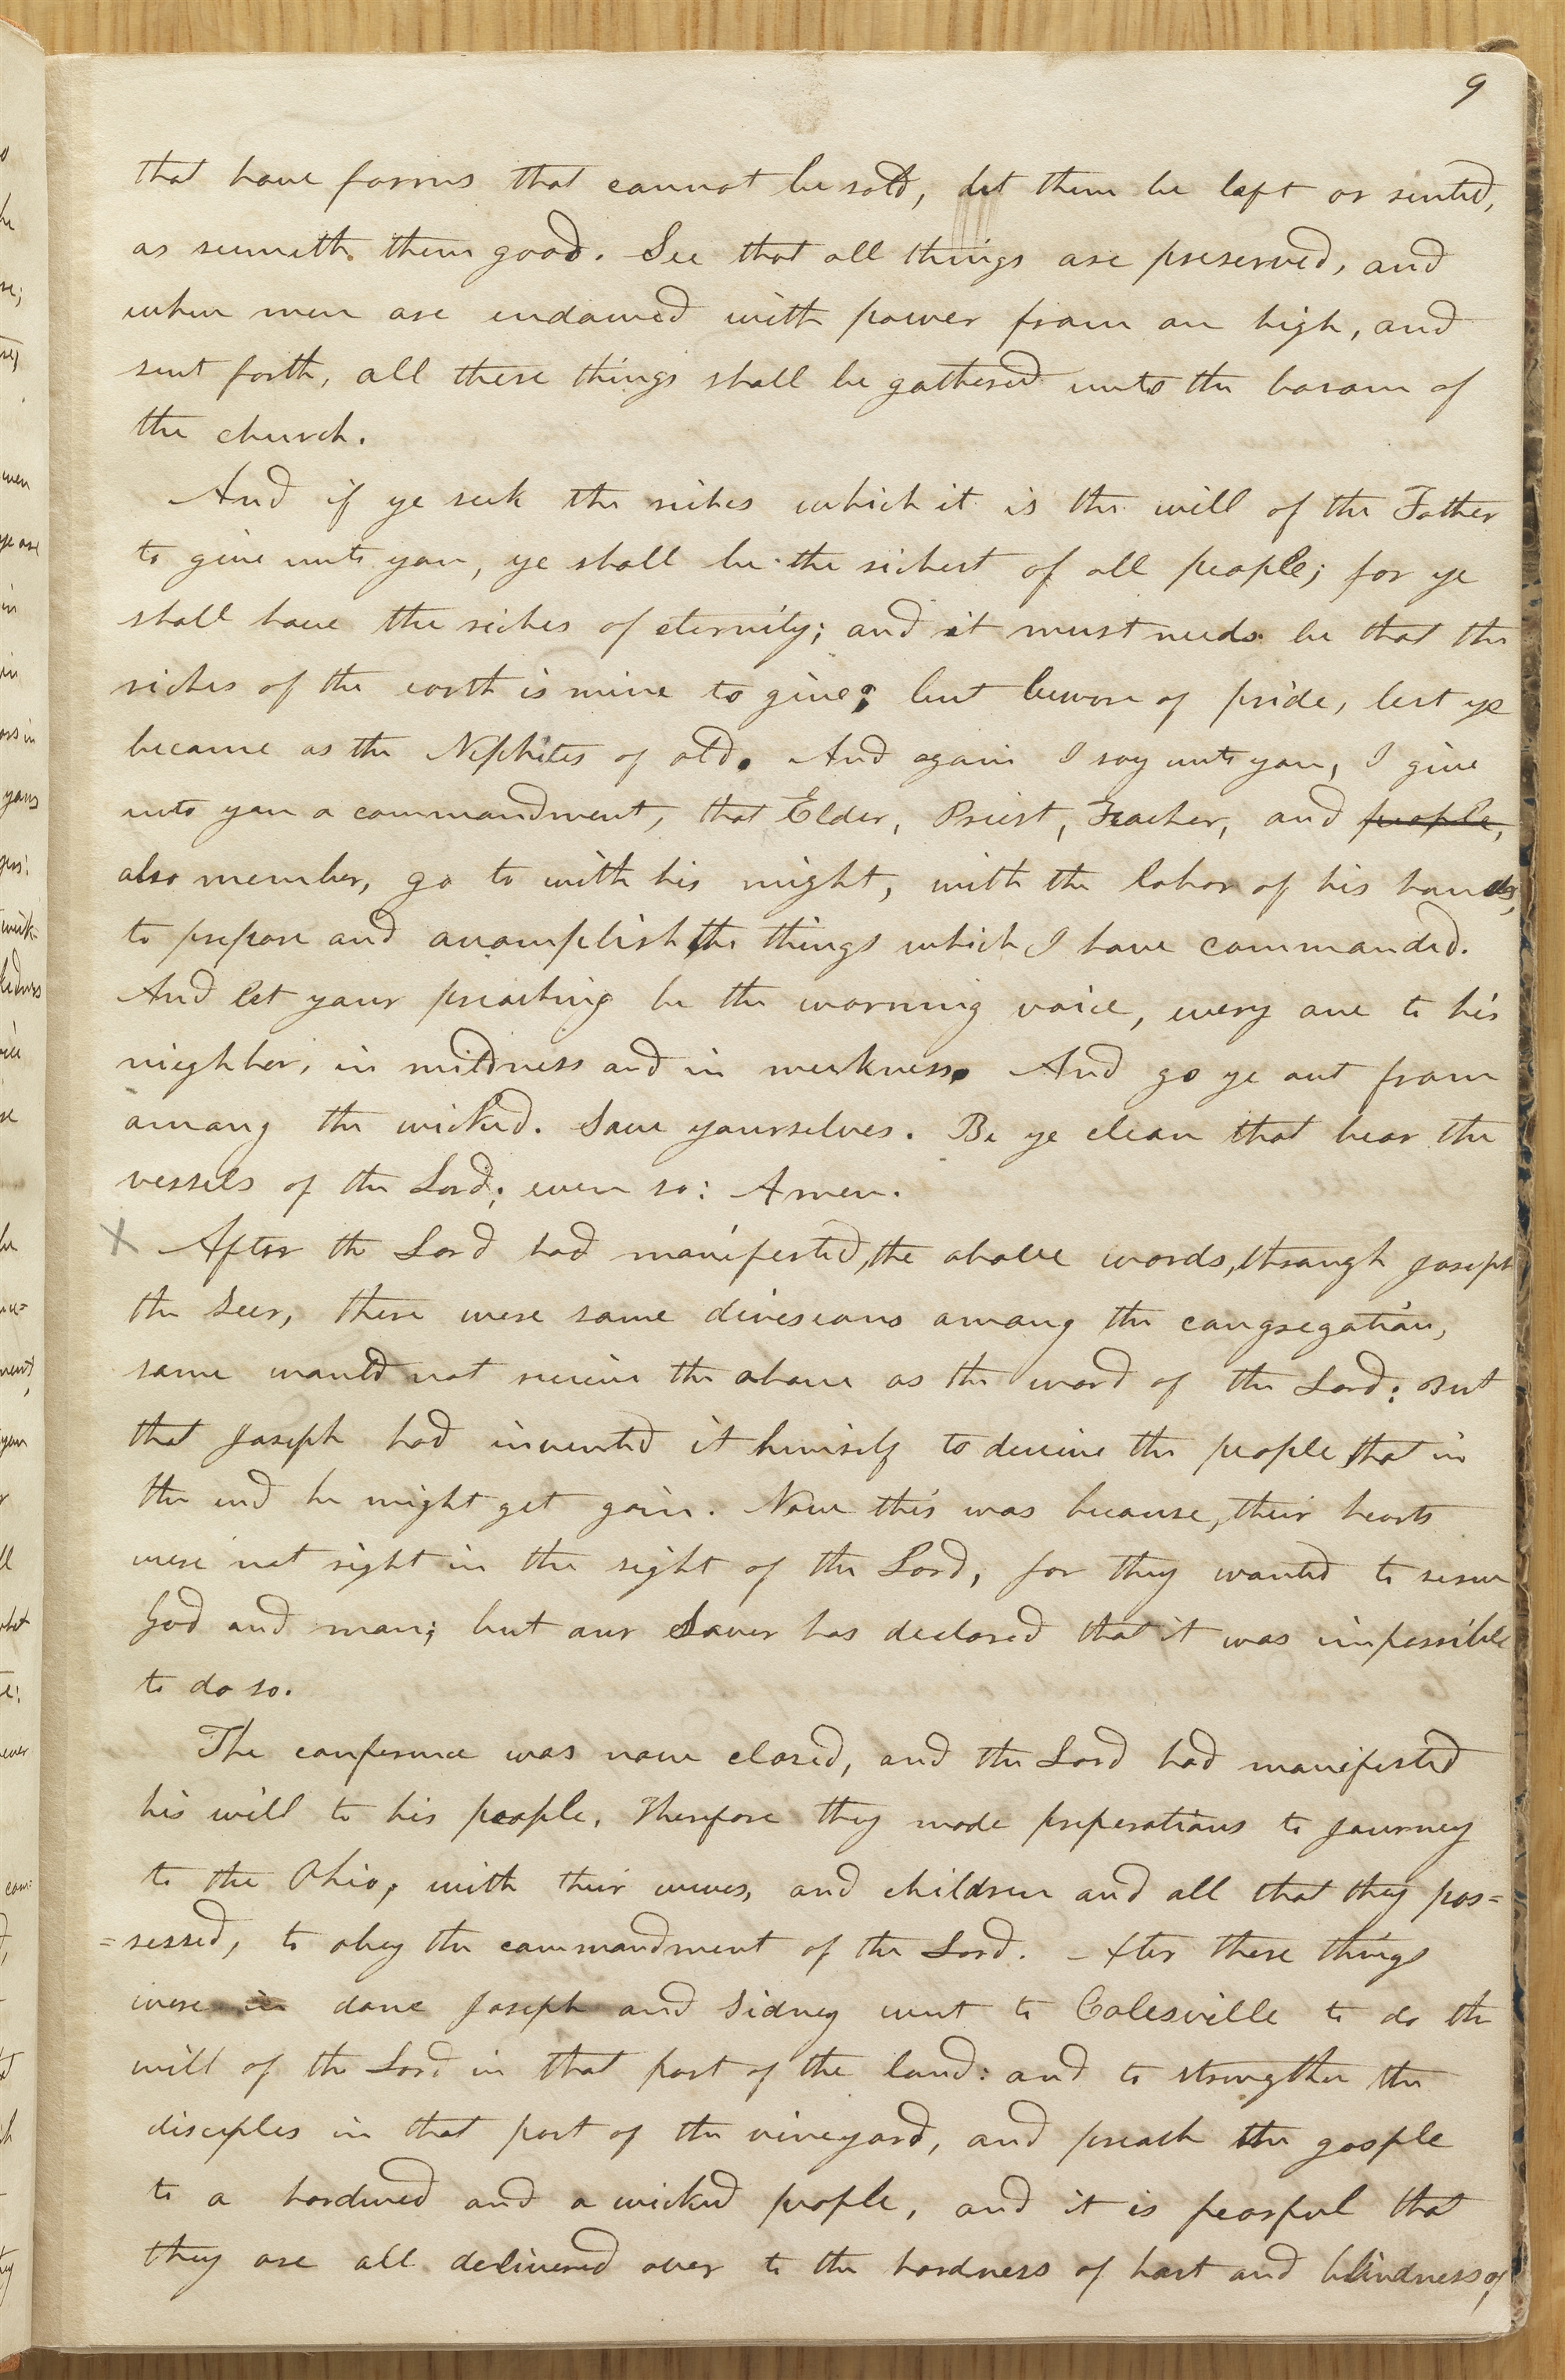 9
that have farms that cannot be sold, let them be left or rented,
as seemeth them good. See that all things are preserved, and
when men are endowed with power from on high, and
sent forth, all these things shall be gathered unto the bosom of
the church.
And if ye seek the riches which it is the will of the Father
to give unto you, ye shall be the richest of all people; for ye
shall have the riches of eternity; and it must needs be that the
riches of the earth is mine to give; but beware of pride, lest ye
become as the Nephites of old. And again I say unto you, I give
unto you a commandment, that Elder, Priest, Teacher, and people,
also member, go to with his might, with the labor of his hands,
to prepare and accomplish the things which I have commanded.
And let your preaching be the warning voice, every one to his
nieghbor, in mildness and in meekness. And go ye out from
among the wicked. Save yourselves. Be ye clean that bear the
vessels of the Lord; even so: Amen.
X After the Lord had manifested, the above words, through Joseph
the Seer, there were some divesions among the congregation,
some would not receive the above as the word of the Lord: But
that Joseph had invented it himself to deceive the people that in
the end he might get gain. Now this was because, their hearts
were not right in the sight of the Lord, for they wanted to serve
God and man; but our Saver has declared that it was impossible
to do so.
The conference was now closed, and the Lord had manifested
his will to his people. Therefore they made preperations to Journey
to the Ohio, with their wives, and children and all that they pos=
=sessed, to obey the commandment of the Lord. After these things
were done Joseph and Sidney went to Colesville to do the
will of the Lord in that part of the land: and to strengthen the
disciples in that part of the vineyard, and preach the gosple
to a hardened and a wicked people, and it is fearful that
they are all delivered over to the hardness of hart and blindness of